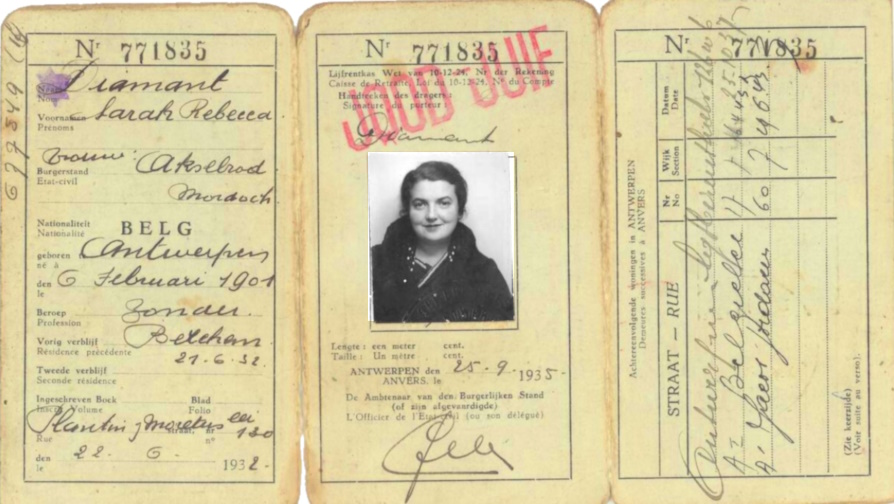 677349
Nr 771835
Naam
Nom
Diamant
Voornamen
Prénoms
Sarah Rebecca
vrouw:
Burgerstand
Etat-civil
Akselrod
Mordoch
Nationaliteit
Nationalité
BELG
geboren
né à
Antwerpen
den
le
6 Februari 1901
Beroep
Profession
zonder.
Vorig verblijf
Résidence précédente
Betchem
21.6.32.
Tweede verblijf
Seconde résidence
Ingeschreven Boek Blad
Inscrit Volume Folio
Plantin Moretus lei
130
straat, nr
Rue n°
den
le
22. 6. 1932.
Nr 771835
Lijfrentkas Wet van 10-12-24, Nr der Rekening
Caisse de Retraite, Loi du 10-12-24, N° du Compte
Handteeken des dragers:
Signature du porteur:
JOOD-JUIF
Diamant
Lengte: een meter cent.
Taille: Un mètre cent.
ANTWERPEN den
ANVERS, le
25.9.1935-
De Ambtenaar van den Burgerlijken Stand
(of zijn afgevaardigde)
L'Officier de l'Etat-civil (ou son délégué)
Nr 771835
Achtereenvolgende woningen in ANTWERPEN
Demeures successives à ANVERS
STRAAT — RUE
Nr
No
Wijk
Section
Datum
Date
Antwerpen
Belgielei
Jacob Jordaens
60 7
(Zie keerzijde)
(Voir suite au verso).